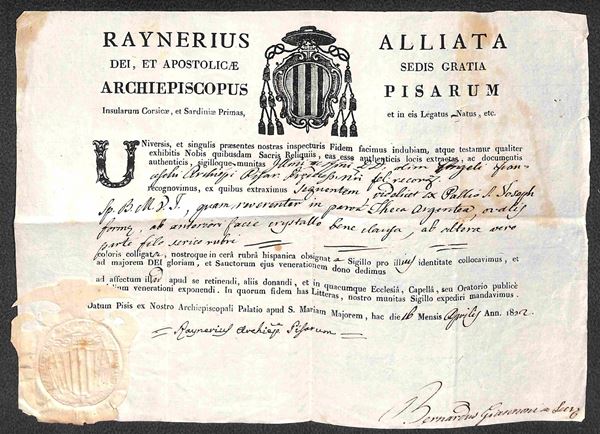 RAYNERIUS ALLIATA
DEI, ET APOSTOLICÆ SEDIS GRATIA
ARCHIEPISCOPUS PISARUM
Insularum Corsicæ, et Sardiniæ Primas, et in eis Legatus Natus, etc.
Universis, et singulis præsentes nostras inspecturis Fidem facimus indubiam, atque testamur qualiter
exhibitis Nobis quibusdam Sacris Reliquiis, eas esse authenticis locis extractas, ac documentis
authenticis, sigilloque munitas olim Angeli Fran
recognovimus, ex quibus extraximus Sequentem, ex Pallio S. Joseph
Sp. B. M. V. quam reverenter in parva Theca Argentea, ovalis
formæ, ab anteriori facie crystallo bene clausa, ab altera vero
parte filo serico rubri
coloris colligata, nostroque in cerâ rubrâ hispanica obsignata Sigillo pro illius identitate collocavimus, et
ad majorem DEI gloriam, et Sanctorum ejus venerationem dono dedimus
ad affectum apud se retinendi, aliis donandi, et in quacumque Ecclesiâ, Capellâ, seu Oratorio publicè
Fidelium venerationi exponendi. In quorum fidem has Litteras, nostro munitas Sigillo expediri mandavimus.
Datum Pisis ex Nostro Archiepiscopali Palatio apud S. Mariam Majorem, hac die 16 Mensis Aprilis Ann.
Raynerius Archieps Pisarum
Bernardus